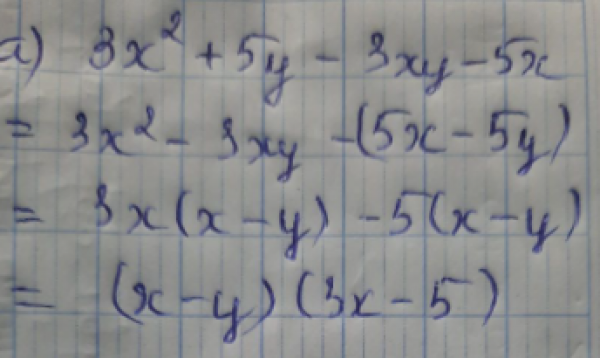 a) 3x² + 5y - 3xy - 5x
= 3x² - 3xy - (5x - 5y)
= 3x(x - y) - 5(x - y)
= (x - y)(3x - 5)